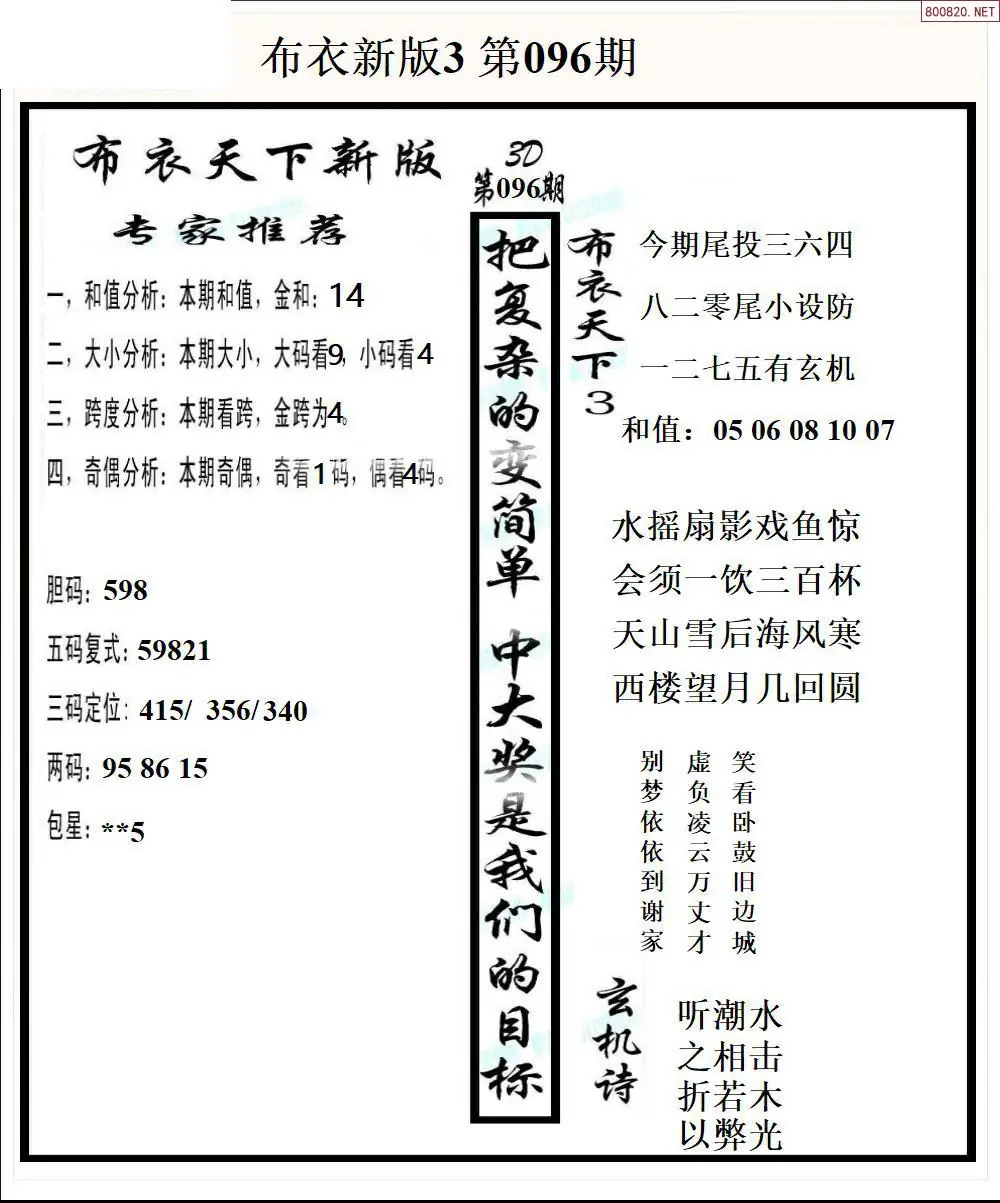 800820.NET
布衣新版3 第096期
布衣天下新版
专家推荐
一，和值分析：本期和值，金和：14
二，大小分析：本期大小，大码看9，小码看4
三，跨度分析：本期看跨，金跨为4。
四，奇偶分析：本期奇偶，奇看1码，偶看4码。
胆码：598
五码复式：59821
三码定位：415/ 356/340
两码：95 86 15
包星：**5
3D
第096期
把复杂的变简单 中大奖是我们的目标
布衣天下3
今期尾投三六四
八二零尾小设防
一二七五有玄机
和值：05 06 08 10 07
水摇扇影戏鱼惊
会须一饮三百杯
天山雪后海风寒
西楼望月几回圆
笑看卧鼓旧边城
虚负凌云万丈才
别梦依依到谢家
玄机诗
听潮水
之相击
折若木
以弊光